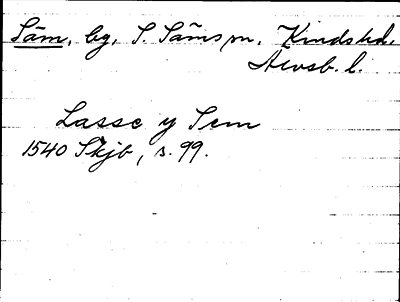 Säm, by, S. Säms sn. Kinds hd.
Älvsb. l.
Lasse y Sem
1540 Skjb, s. 99.